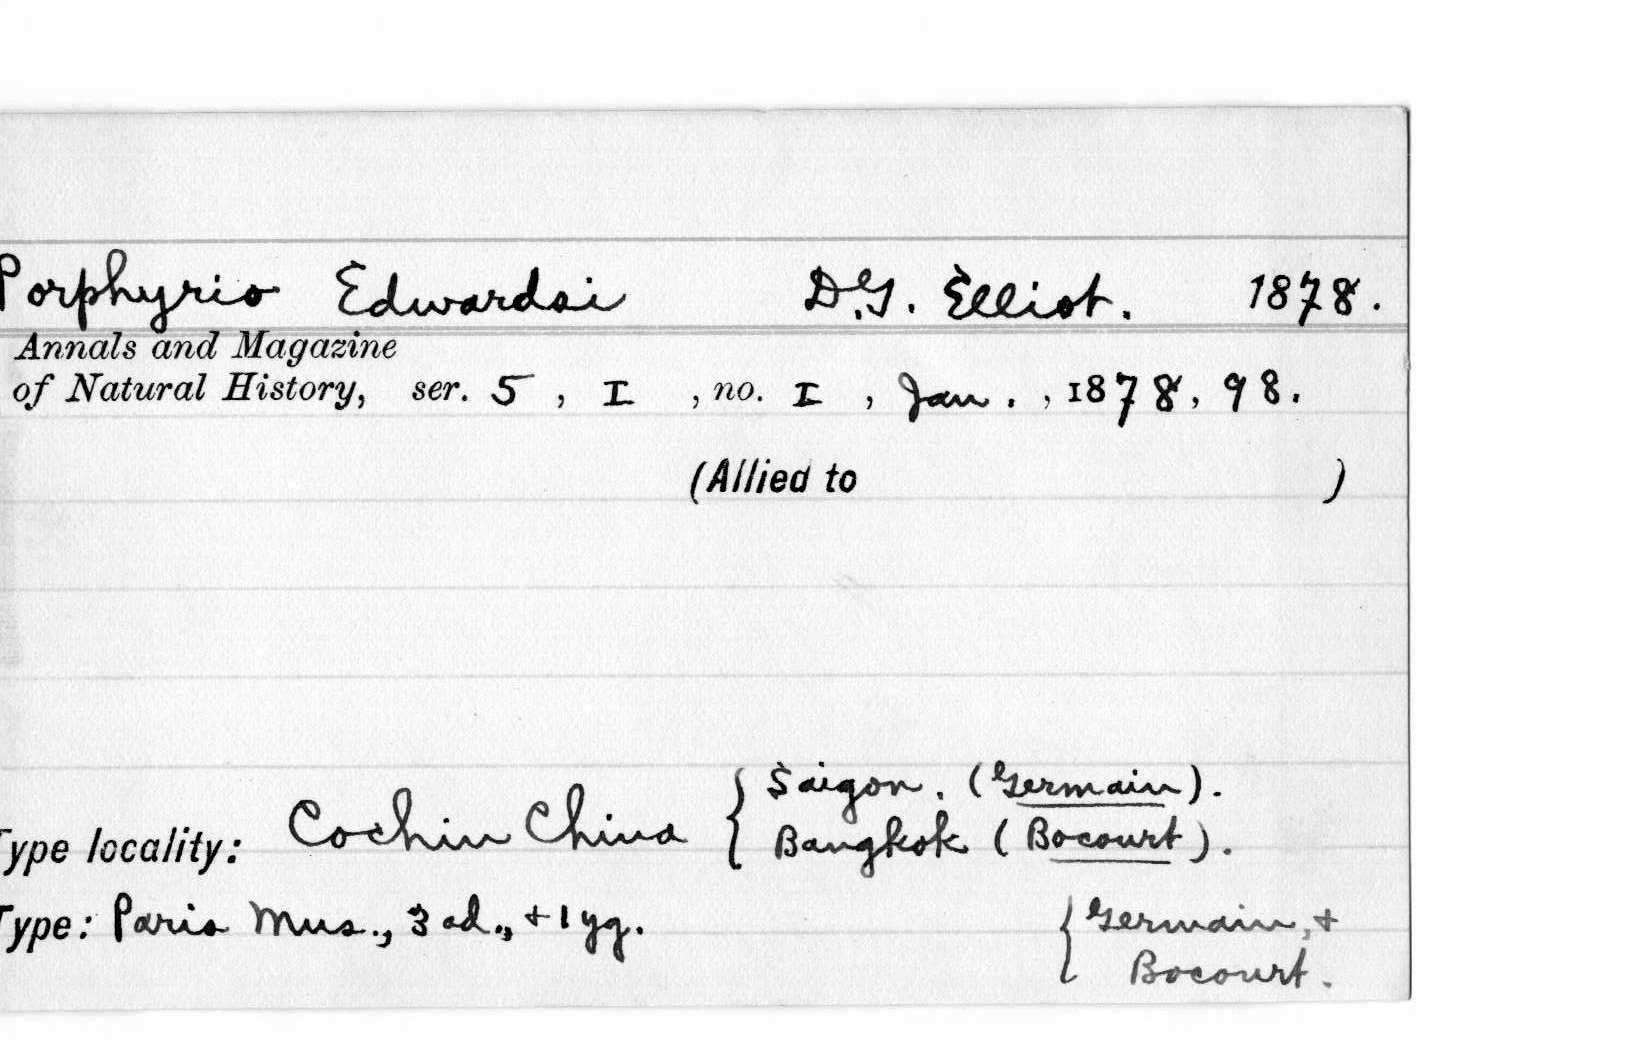 Porphyrio Edwardsi D.G. Elliot. 1878.
Annals and Magazine
of Natural History, ser. 5, I, no. I, Jan., 1878, 98.
(Allied to )
Saigon. (Germain).
Type locality: Cochin China { Bangkok (Bocourt).
Type: Paris Mus., 3 ad., + 1 yg. { Germain, +
Bocourt.